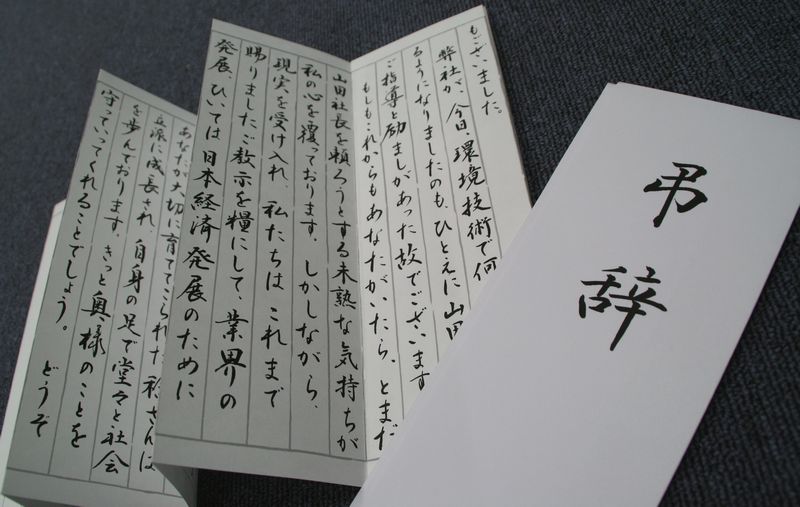 弔辞
もございました。
弊社が、今日、環境技術で何
るようになりましたのも、ひとえに山田
ご指導と励ましがあった故でございます
もしもこれからもあなたがいたら、とまだ
山田社長を頼ろうとする未熟な気持ちが
私の心を覆っております。しかしながら、
現実を受け入れ、私たちはこれまで
賜りましたご教示を糧にして、業界の
発展、ひいては日本経済発展のために
あなたが大切に育ててこられた
さんは
立派に成長され、自身の足で堂々と社会
を歩んでおります。きっと奥様のことを
守っていってくれることでしょう。どうぞ